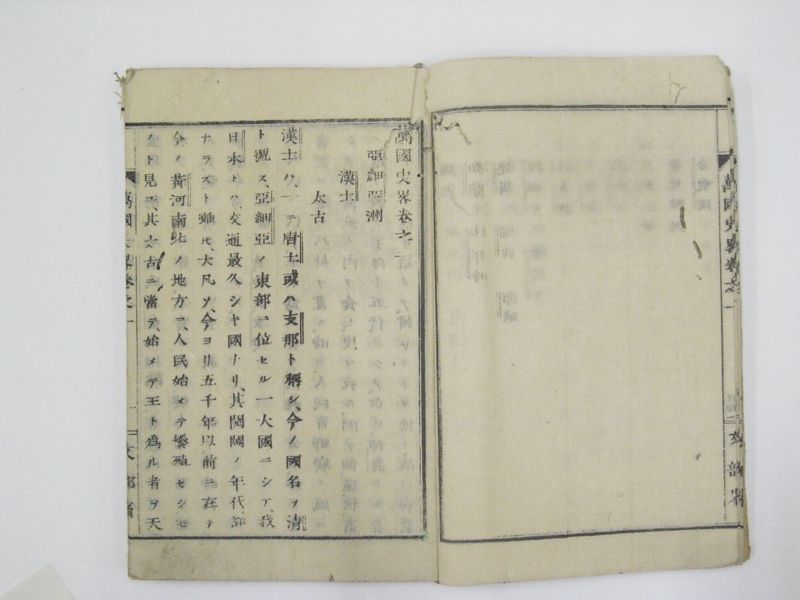 萬國史畧卷之一
文部省
萬國史畧卷之一
亞細亞洲
漢土
太古
漢土ハ、一ニ唐土或ハ支那ト稱シ、今ノ國名ヲ清
ト號ス、亞細亞ノ東部ニ位セル一大國ニシテ、我
日本トハ、交通最久シキ國ナリ、其開國ノ年代、詳
ナラスト雖モ、大凡ソ、今ヨリ五千年以前ニ在テ
今ノ黃河南北ノ地方ニ、人民始メテ繁殖セシモ
ノト見エ、其太古ニ當テ、始メテ王ト爲ル者ヲ天
萬國史畧卷之一
一
文部省